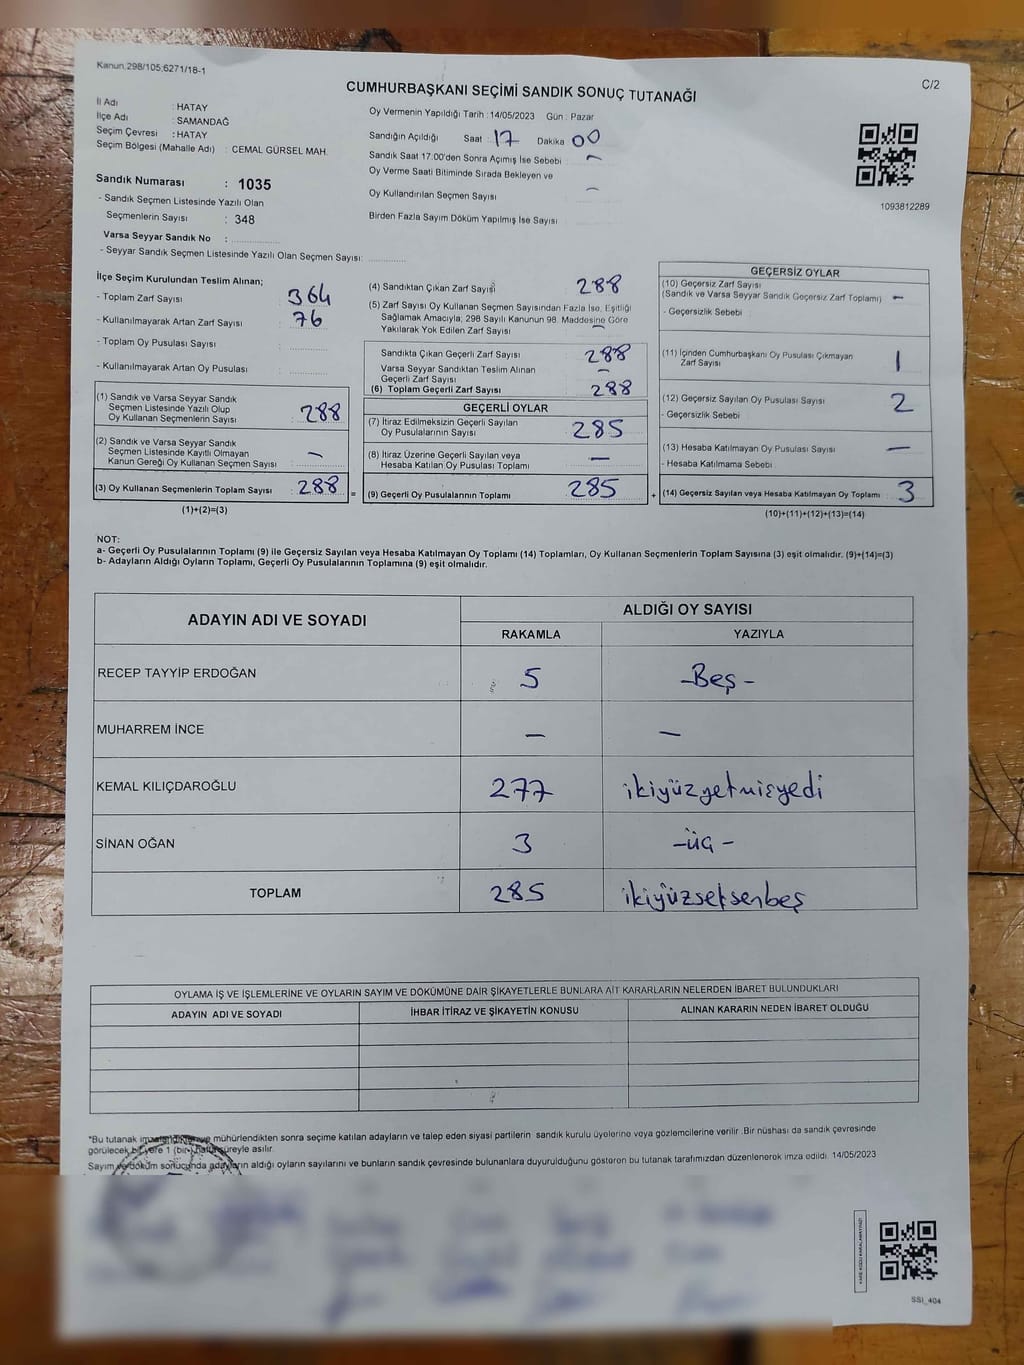 Kanun,298/105,6271/18-1
C/2
CUMHURBAŞKANI SEÇİMİ SANDIK SONUÇ TUTANAĞI
İl Adı : HATAY
İlçe Adı : SAMANDAĞ
Seçim Çevresi : HATAY
Seçim Bölgesi (Mahalle Adı) : CEMAL GÜRSEL MAH.
Sandık Numarası : 1035
- Sandık Seçmen Listesinde Yazılı Olan
Seçmenlerin Sayısı : 348
Varsa Seyyar Sandık No :
- Seyyar Sandık Seçmen Listesinde Yazılı Olan Seçmen Sayısı:
Oy Vermenin Yapıldığı Tarih : 14/05/2023 Gün : Pazar
Sandığın Açıldığı Saat : 17 Dakika 00
Sandık Saat 17:00'den Sonra Açımış İse Sebebi -
Oy Verme Saati Bitiminde Sırada Bekleyen ve
Oy Kullandırılan Seçmen Sayısı -
Birden Fazla Sayım Döküm Yapılmış İse Sayısı
1093812289
İlçe Seçim Kurulundan Teslim Alınan;
- Toplam Zarf Sayısı : 364
- Kullanılmayarak Artan Zarf Sayısı : 76
- Toplam Oy Pusulası Sayısı :
- Kullanılmayarak Artan Oy Pusulası :
(1) Sandık ve Varsa Seyyar Sandık
Seçmen Listesinde Yazılı Olup
Oy Kullanan Seçmenlerin Sayısı : 288
(2) Sandık ve Varsa Seyyar Sandık
Seçmen Listesinde Kayıtlı Olmayan
Kanun Gereği Oy Kullanan Seçmen Sayısı : -
(3) Oy Kullanan Seçmenlerin Toplam Sayısı : 288
(1)+(2)=(3)
(4) Sandıktan Çıkan Zarf Sayısı 288
(5) Zarf Sayısı Oy Kullanan Seçmen Sayısından Fazla İse, Eşitliği
Sağlamak Amacıyla; 298 Sayılı Kanunun 98. Maddesine Göre
Yakılarak Yok Edilen Zarf Sayısı -
Sandıkta Çıkan Geçerli Zarf Sayısı 288
Varsa Seyyar Sandıktan Teslim Alınan
Geçerli Zarf Sayısı -
(6) Toplam Geçerli Zarf Sayısı 288
GEÇERLİ OYLAR
(7) İtiraz Edilmeksizin Geçerli Sayılan
Oy Pusulalarının Sayısı 285
(8) İtiraz Üzerine Geçerli Sayılan veya
Hesaba Katılan Oy Pusulası Toplamı -
= (9) Geçerli Oy Pusulalarının Toplamı 285 +
GEÇERSİZ OYLAR
(10) Geçersiz Zarf Sayısı
(Sandık ve Varsa Seyyar Sandık Geçersiz Zarf Toplamı) -
- Geçersizlik Sebebi :
(11) İçinden Cumhurbaşkanı Oy Pusulası Çıkmayan
Zarf Sayısı 1
(12) Geçersiz Sayılan Oy Pusulası Sayısı : 2
- Geçersizlik Sebebi :
(13) Hesaba Katılmayan Oy Pusulası Sayısı : -
- Hesaba Katılmama Sebebi :
(14) Geçersiz Sayılan veya Hesaba Katılmayan Oy Toplamı : 3
(10)+(11)+(12)+(13)=(14)
NOT:
a- Geçerli Oy Pusulalarının Toplamı (9) ile Geçersiz Sayılan veya Hesaba Katılmayan Oy Toplamı (14) Toplamları, Oy Kullanan Seçmenlerin Toplam Sayısına (3) eşit olmalıdır. (9)+(14)=(3)
b- Adayların Aldığı Oyların Toplamı, Geçerli Oy Pusulalarının Toplamına (9) eşit olmalıdır.
ADAYIN ADI VE SOYADI ALDIĞI OY SAYISI
RAKAMLA YAZIYLA
RECEP TAYYİP ERDOĞAN 5 -Beş-
MUHARREM İNCE - -
KEMAL KILIÇDAROĞLU 277 ikiyüzyetmişyedi
SİNAN OĞAN 3 -üç-
TOPLAM 285 ikiyüzseksenbeş
OYLAMA İŞ VE İŞLEMLERİNE VE OYLARIN SAYIM VE DÖKÜMÜNE DAİR ŞİKAYETLERLE BUNLARA AİT KARARLARIN NELERDEN İBARET BULUNDUKLARI
ADAYIN ADI VE SOYADI İHBAR İTİRAZ VE ŞİKAYETİN KONUSU ALINAN KARARIN NEDEN İBARET OLDUĞU
*Bu tutanak imzalandıktan ve mühürlendikten sonra seçime katılan adayların ve talep eden siyasi partilerin sandık kurulu üyelerine veya gözlemcilerine verilir. Bir nüshası da sandık çevresinde
görülecek bir yere 1 (bir) hafta süreyle asılır.
Sayım ve döküm sonucunda adayların aldığı oyların sayılarını ve bunların sandık çevresinde bulunanlara duyurulduğunu gösteren bu tutanak tarafımızdan düzenlenerek imza edildi. 14/05/2023
SSI_404